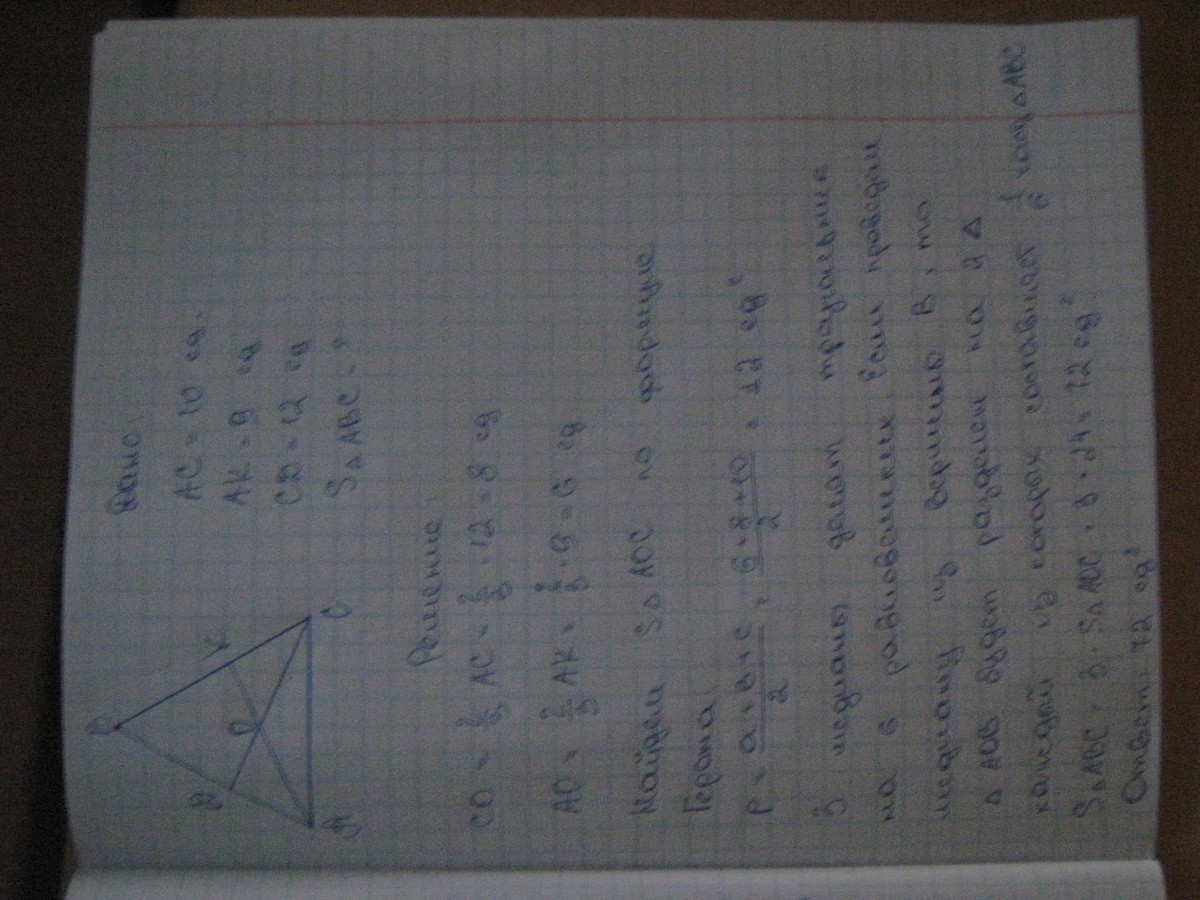 Дано:
AC = 10 ед.
AK = 9 ед
CD = 12 ед
S△ABC - ?
B
D
K
O
A
C
Решение:
CO = 2/3 AC = 2/3 · 12 = 8 ед
AO = 2/3 AK = 2/3 · 9 = 6 ед
Найдем S△AOC по формуле
Герона.
P = a+в+c/2 = 6+8+10/2 = 12 ед²
3 медианы делят треугольник
на 6 равновеликих. Если проведем
медиану из вершины B, то
△AOB будет разделен на 2 △
каждой из которых составляет 1/6 △ABC
S△ABC = 3 · S△AOC = 3 · 24 = 72 ед²
Ответ: 72 ед²